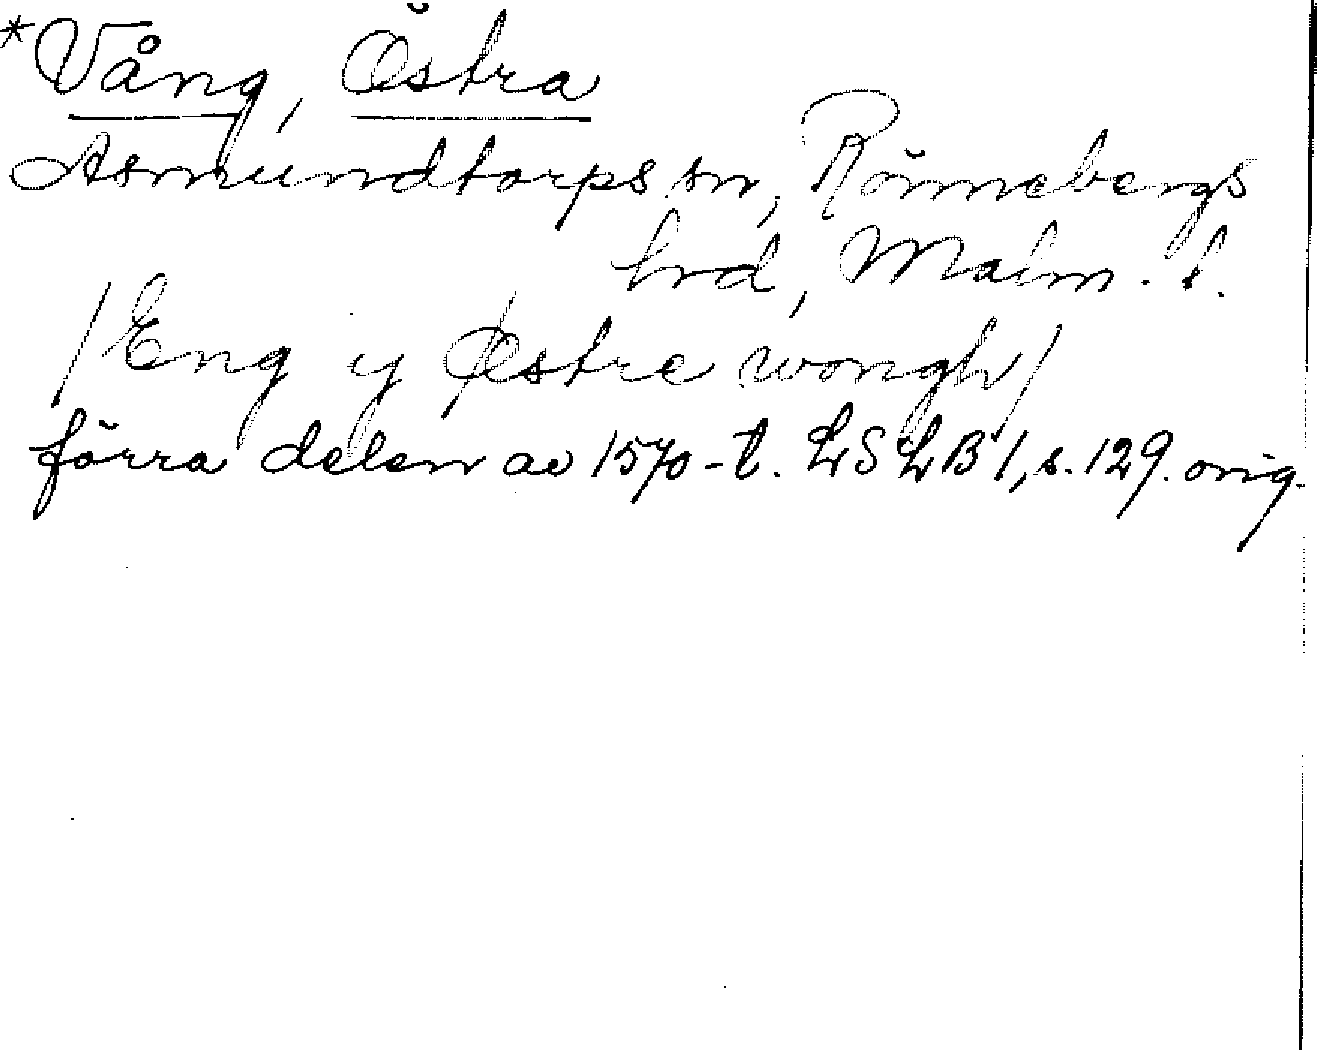 *Vång, Östra
Asmundtorps sn, Rönnebergs
hrd, Malm. l.
/Eng y Østre wongh/
förra delen av 1570-t. LSLB 1, s. 129. orig.